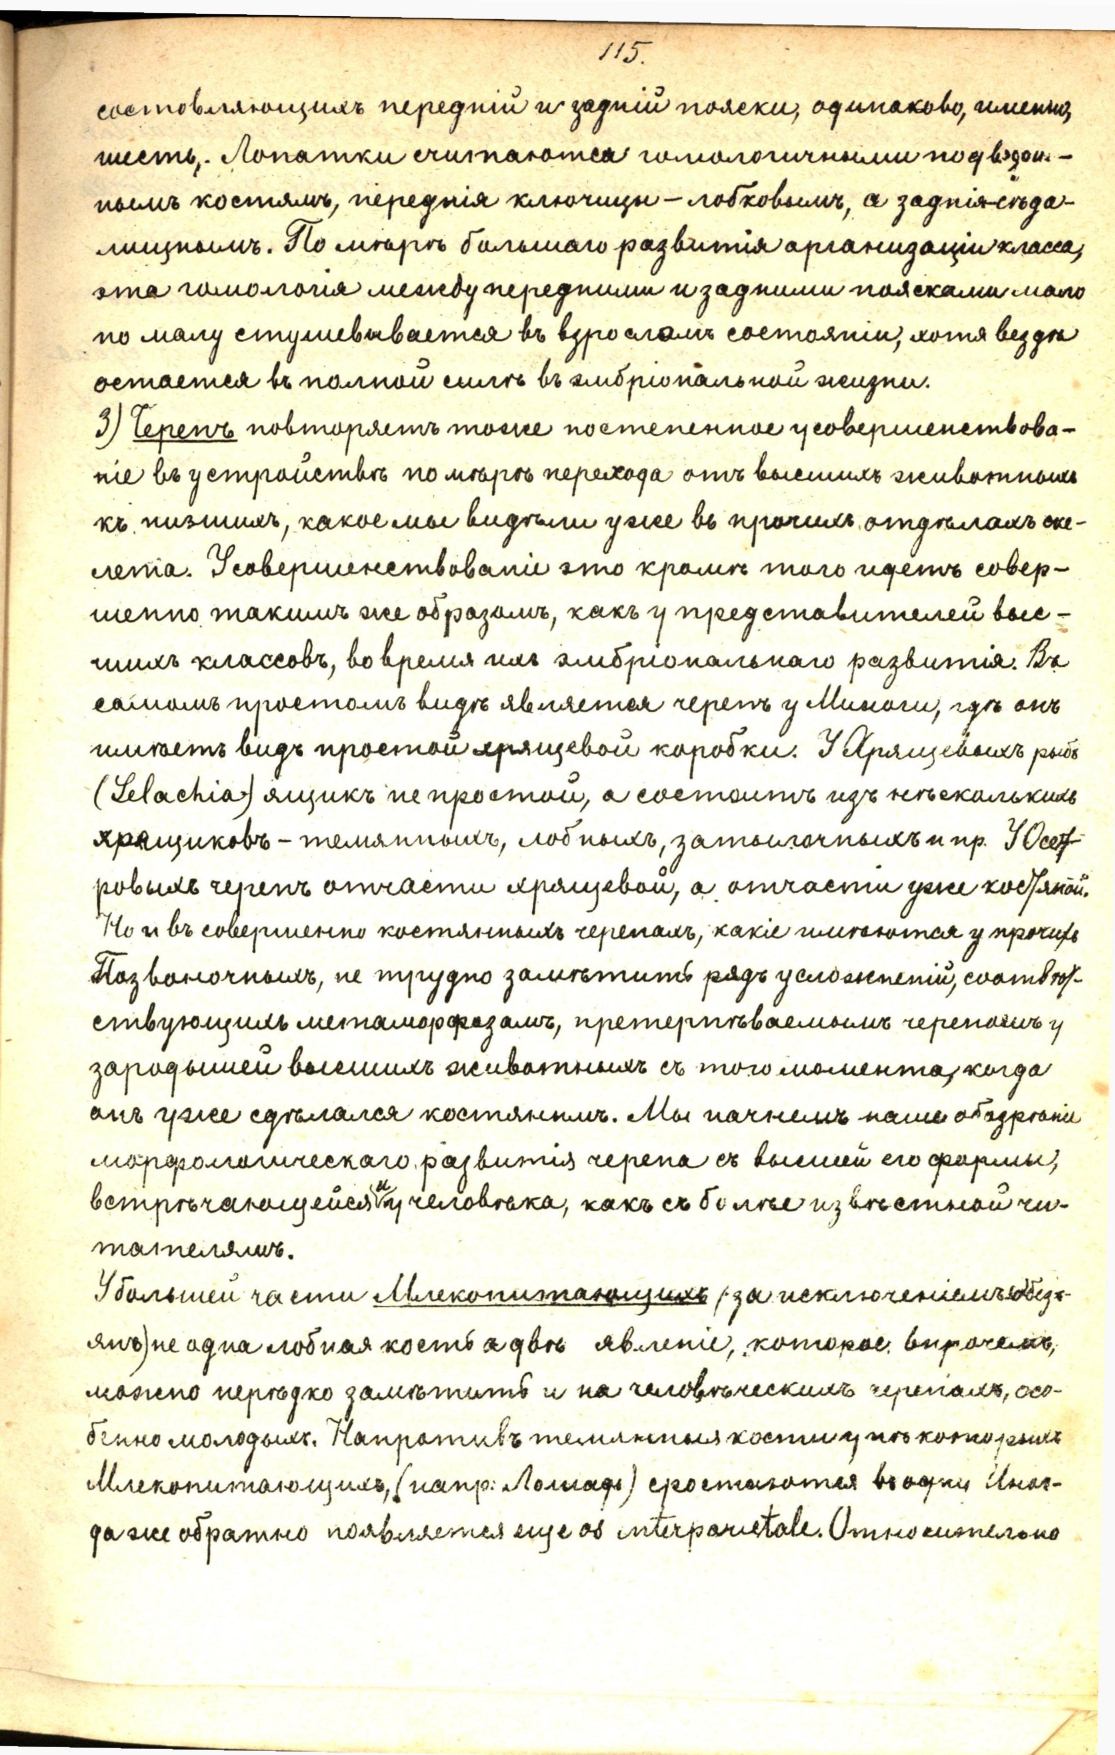 115.
составляющихъ передній и задній пояски, одинаково, именно,
шесть,. Лопатки считаются гомологичными подвздош-
нымъ костямъ, переднія ключицы – лобковымъ, а заднія – сѣда-
лищнымъ. По мѣрѣ большаго развитія организаціи класса,
эта гомологія между передними и задними поясками мало
по малу стушевывается въ взросломъ состояніи, хотя вездѣ
остается въ полной силѣ въ эмбріональной жизни.
3) Черепъ повторяетъ тоже постепенное усовершенствова-
ніе въ устройствѣ по мѣрѣ перехода отъ высшихъ животныхъ
къ низшихъ, какое мы видѣли уже въ прочихъ отдѣлахъ ске-
лета. Усовершенствованіе это кромѣ того идетъ совер-
шенно такимъ же образомъ, какъ у представителей выс-
шихъ классовъ, во время ихъ эмбріональнаго развитія. Въ
самомъ простомъ видѣ является черепъ у Миноги, гдѣ онъ
имѣетъ видъ простой хрящевой коробки. У Хрящевыхъ рыбъ
(Selachia) ящикъ не простой, а состоитъ изъ нѣсколькихъ
хрящиковъ – темянныхъ, лобныхъ, затылочныхъ и пр. У Осет-
ровыхъ черепъ отчасти хрящевой, а отчасти уже костяной.
Но и въ совершенно костянныхъ черепахъ, какіе имѣются у прочихъ
Позвоночныхъ, не трудно замѣтить рядъ усложненій, соотвѣт-
ствующихъ метаморфозамъ, претерпѣваемымъ черепомъ у
зародышей высшихъ животныхъ съ того момента, когда
онъ уже сдѣлался костянымъ. Мы начнемъ наше обозрѣніе
морфологическаго развитія черепа съ высшей его формы,
встрѣчающейся и у человѣка, какъ съ болѣе извѣстной чи-
тателямъ.
У большей части Млекопитающихъ (за исключеніемъ обезь-
янъ) не одна лобная кость а двѣ явленіе, которое впрочемъ,
можно нерѣдко замѣтить и на человѣческихъ черепахъ, осо-
бенно молодыхъ. Напротивъ темянныя кости у нѣкоторыхъ
Млекопитающихъ, (напр: Лошадь) сростаются въ одну Иног-
да же обратно появляется еще os interparietale. Относительно